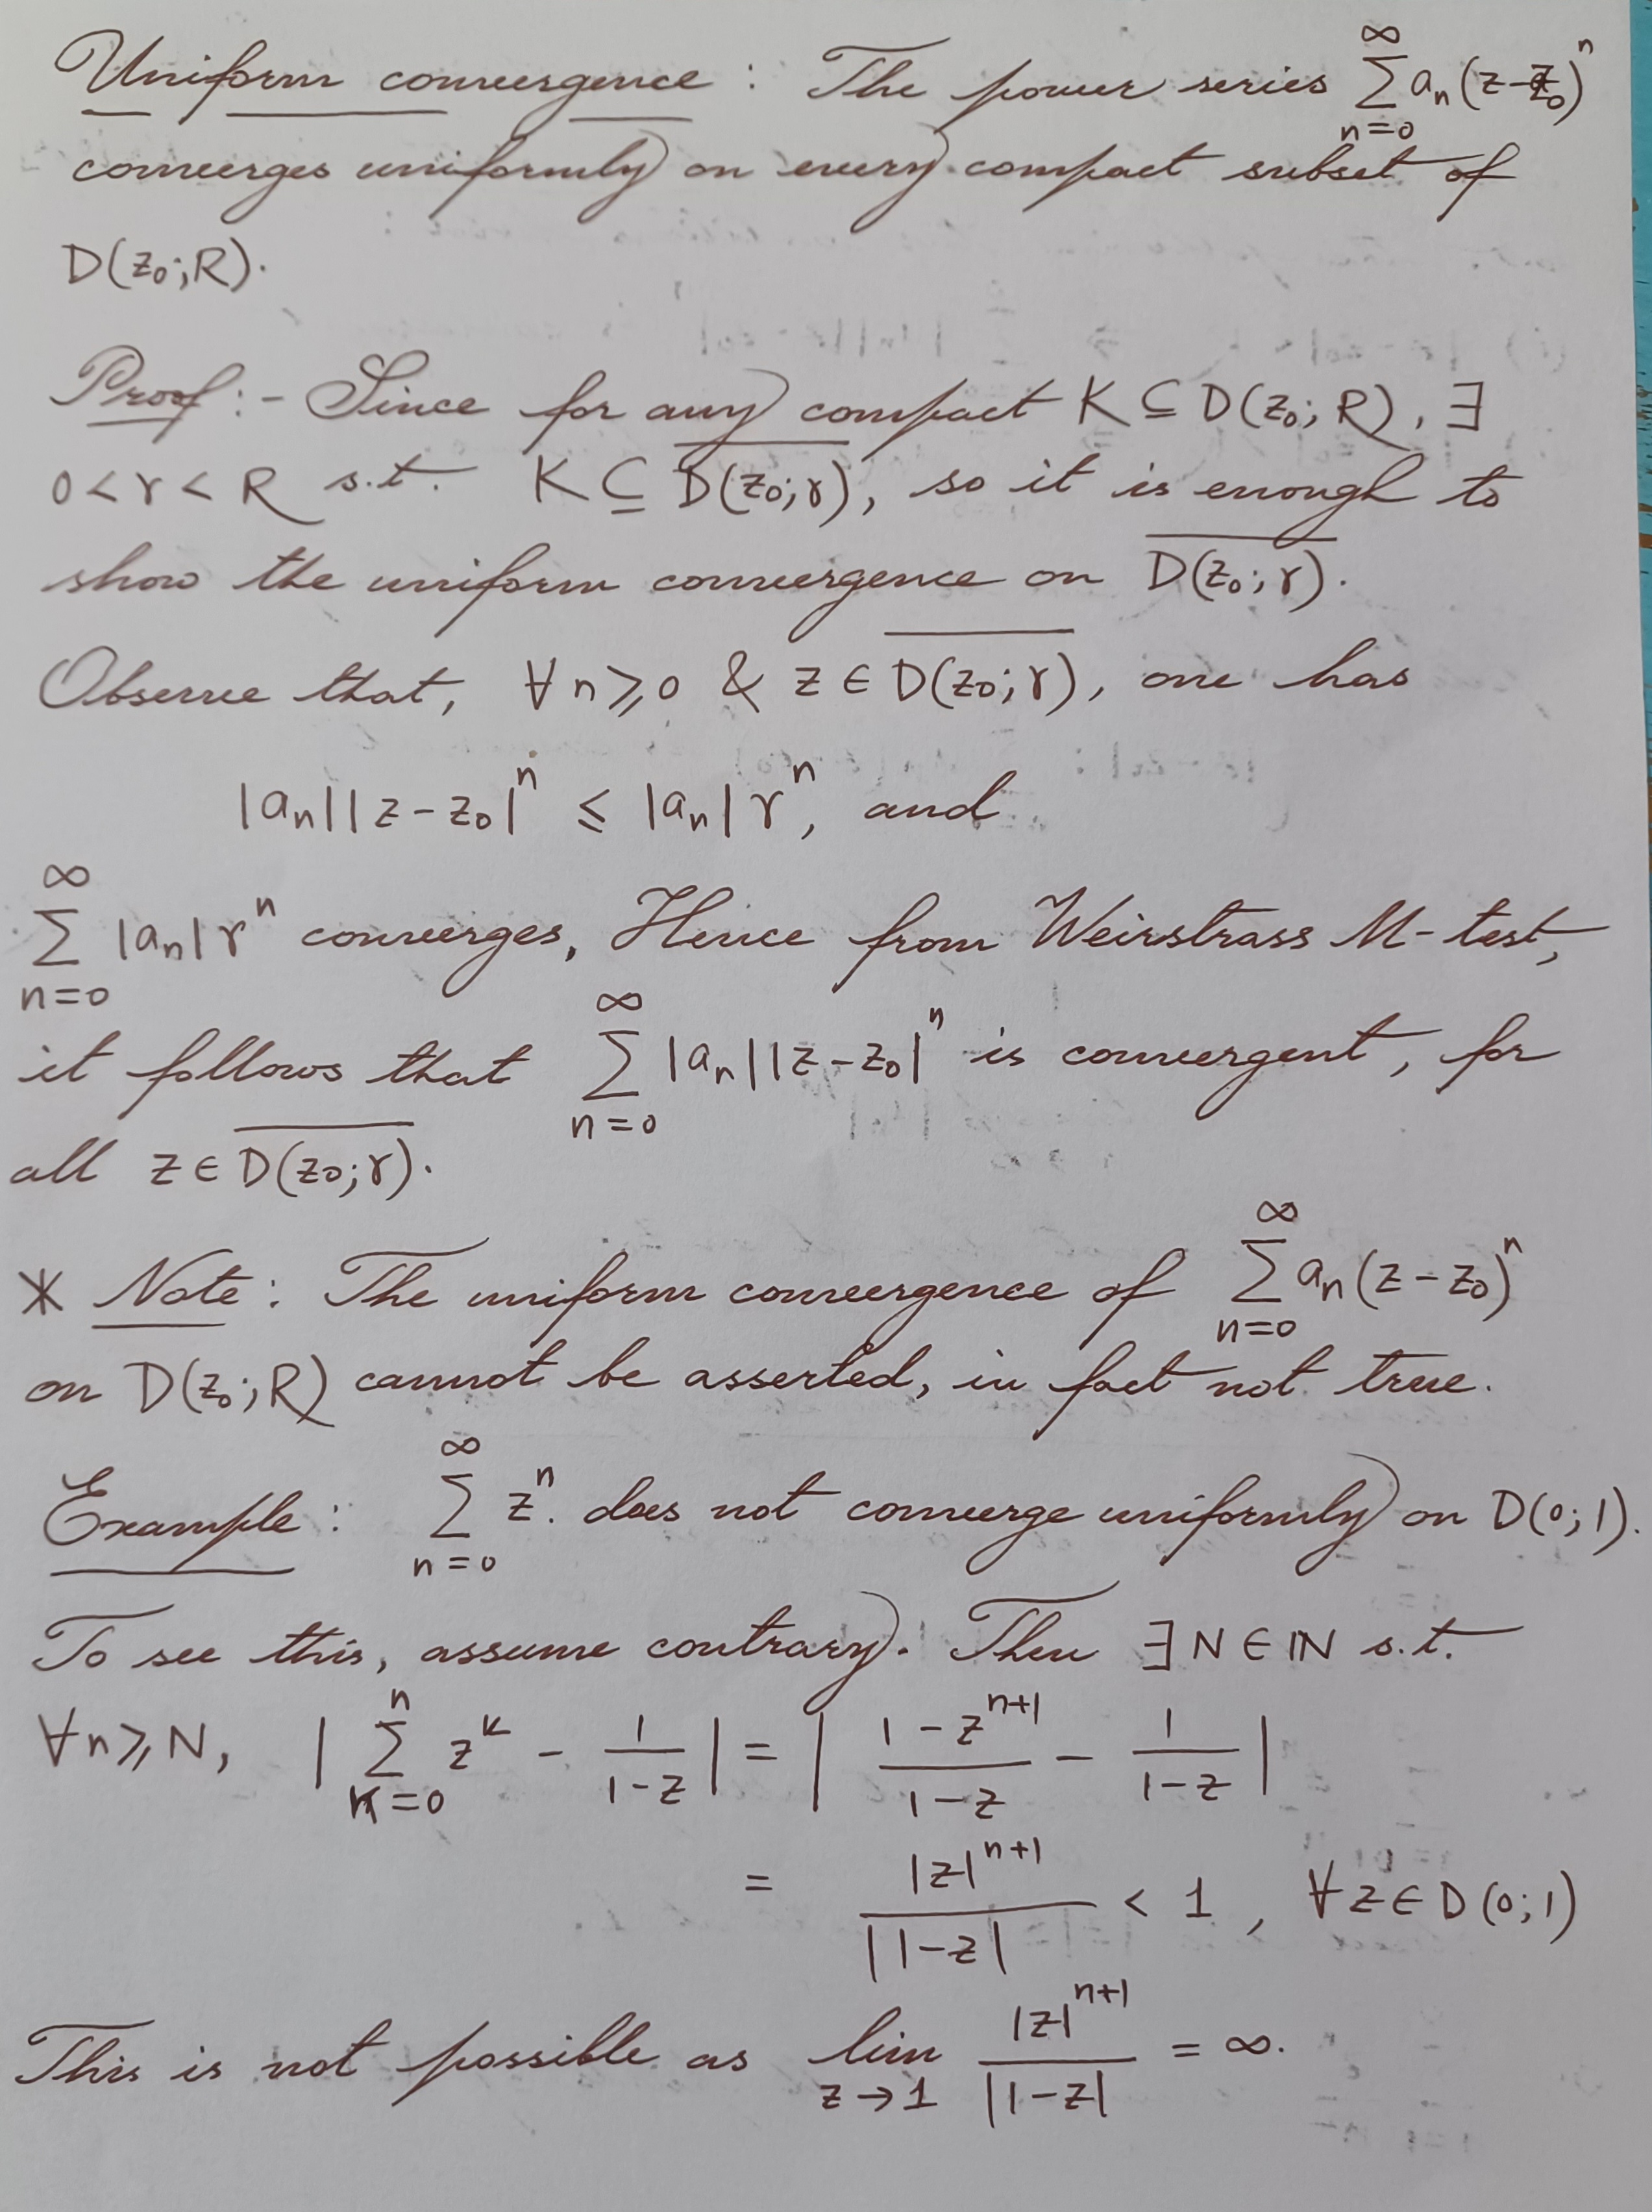 Uniform convergence : The power series $\sum_{n=0}^{\infty} a_n (z-z_0)^n$
converges uniformly on every compact subset of
$D(z_0; R)$.
Proof :- Since for any compact $K \subseteq D(z_0; R)$, $\exists$
$0 < r < R$ s.t. $K \subseteq \overline{D(z_0; r)}$, so it is enough to
show the uniform convergence on $\overline{D(z_0; r)}$.
Observe that, $\forall n \geqslant 0$ & $z \in \overline{D(z_0; r)}$, one has
$|a_n||z-z_0|^n \leqslant |a_n| r^n$, and
$\sum_{n=0}^{\infty} |a_n| r^n$ converges, Hence from Weirstrass M-test,
it follows that $\sum_{n=0}^{\infty} |a_n||z-z_0|^n$ is convergent, for
all $z \in \overline{D(z_0; r)}$.
* Note : The uniform convergence of $\sum_{n=0}^{\infty} a_n (z-z_0)^n$
on $D(z_0; R)$ cannot be asserted, in fact not true.
Example : $\sum_{n=0}^{\infty} z^n$. does not converge uniformly on $D(0; 1)$.
To see this, assume contrary. Then $\exists N \in \mathbb{N}$ s.t.
$\forall n \geqslant N$, $\left| \sum_{k=0}^{n} z^k - \frac{1}{1-z} \right| = \left| \frac{1-z^{n+1}}{1-z} - \frac{1}{1-z} \right|$
$= \frac{|z|^{n+1}}{|1-z|} < 1$, $\forall z \in D(0; 1)$
This is not possible as $\lim_{z \to 1} \frac{|z|^{n+1}}{|1-z|} = \infty$.